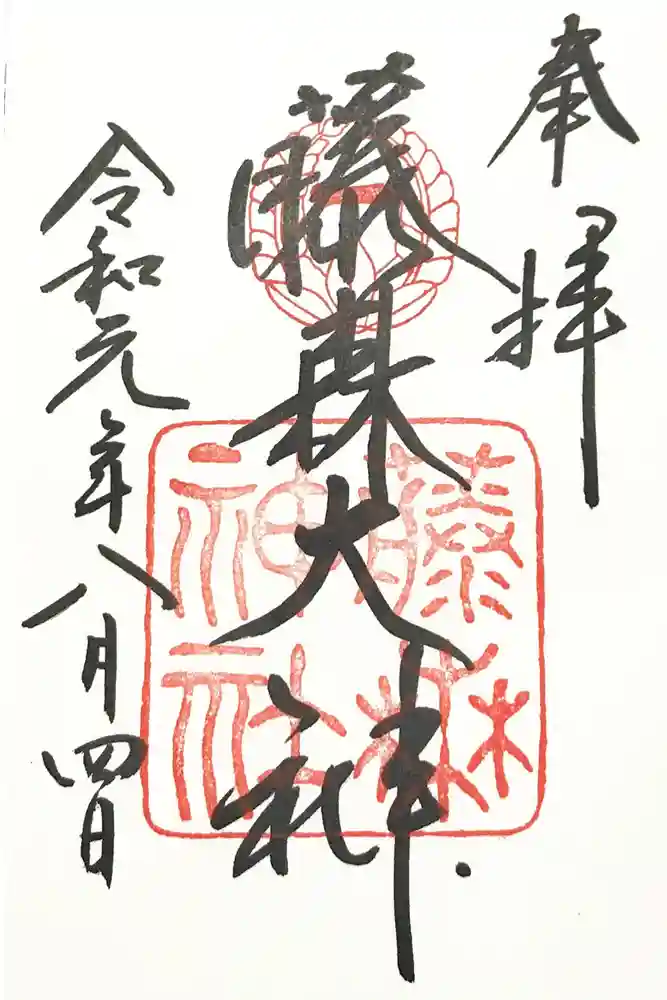 奉拝
藤森大神
藤森
神社
令和元年八月四日